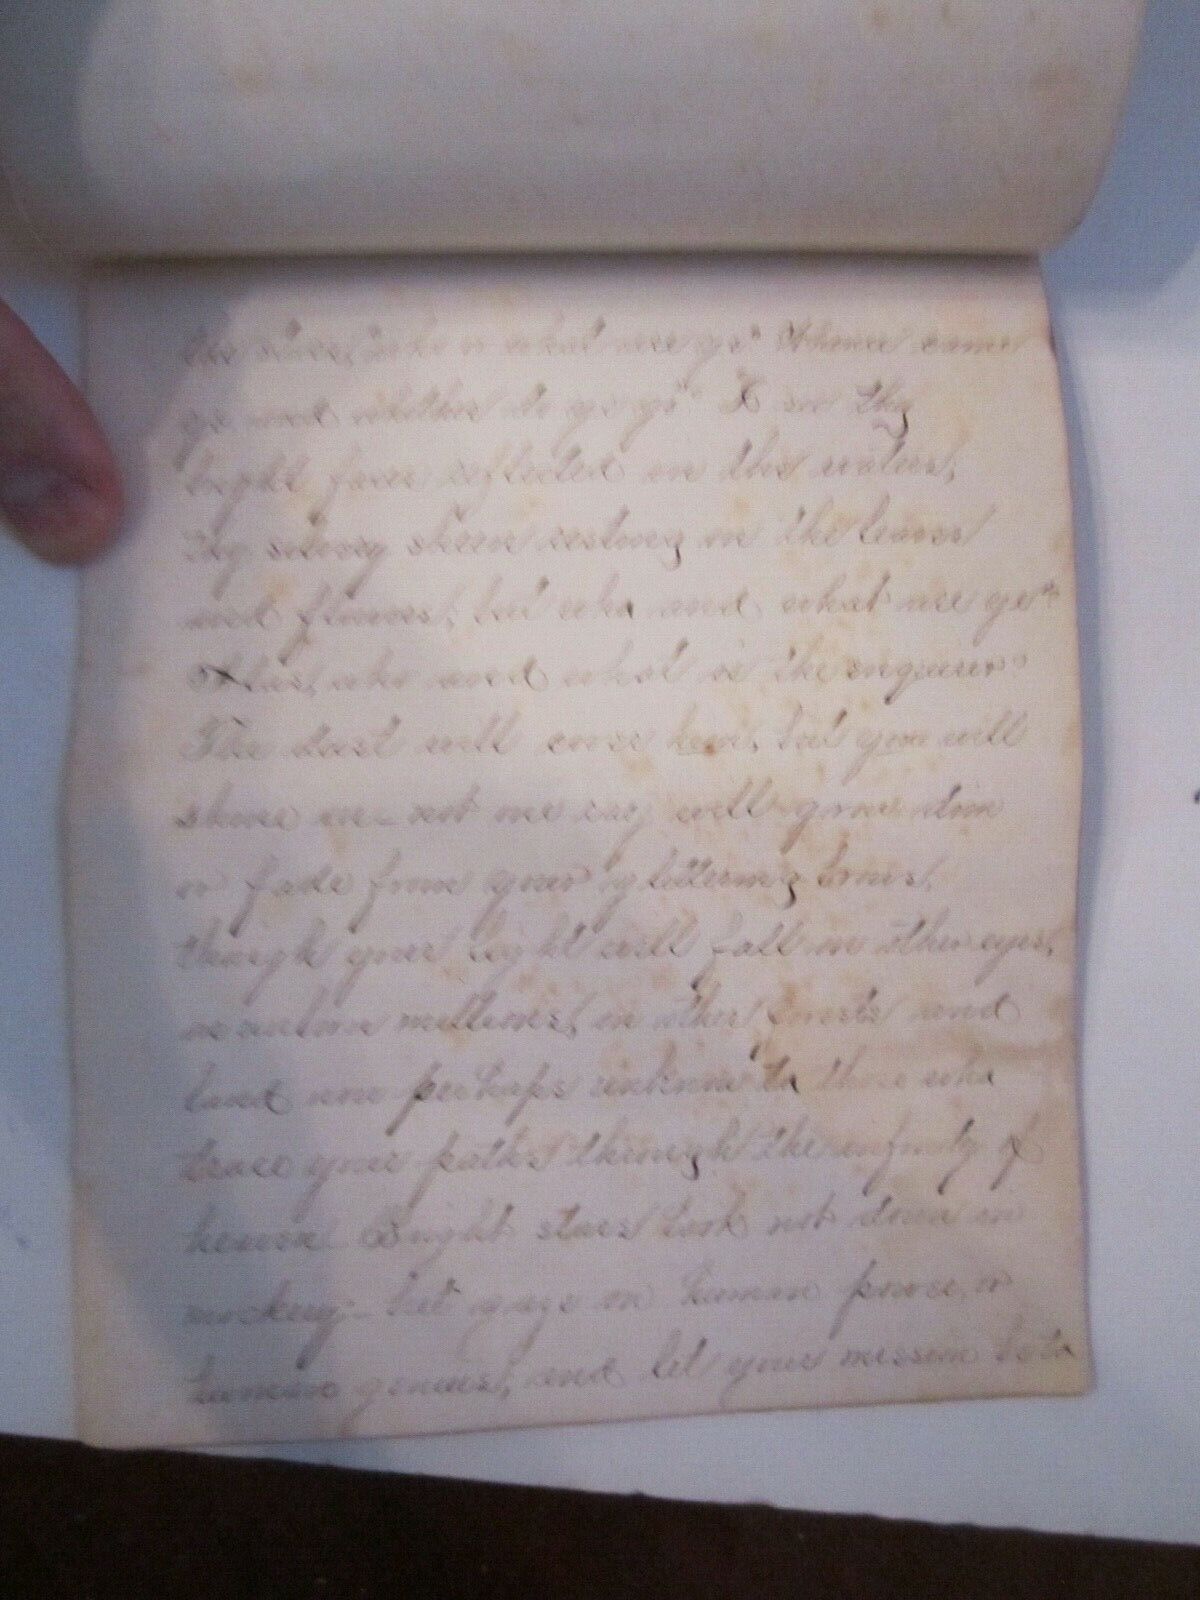 the stars, "who or what are ye" Whence came
ye and whither do ye go" I see thy
bright faces reflected in the waters,
thy silvery sheen resting on the leaves
and flowers, but who and what are ye"
Alas, who and what is the enquirer
The dust will cover him, but you will
shine on_ not one ray will grow dim
or fade from your glittering
though your light will fall on other eyes,
millions, in other forests and
land now perhaps unknown to those who
trace your paths through the infinity of
heaven. Bright stars look not down in
mockery_ but gaze on human power, or
human genius, and let your mission be to